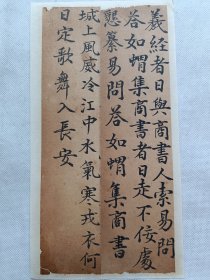 義経者日與商書人索易問
荅如蝟集商書者日走不侫處
懇纂易問荅如蝟集商書
城上風威冷江中水氣寒戎衣何
日定歌舞入長安